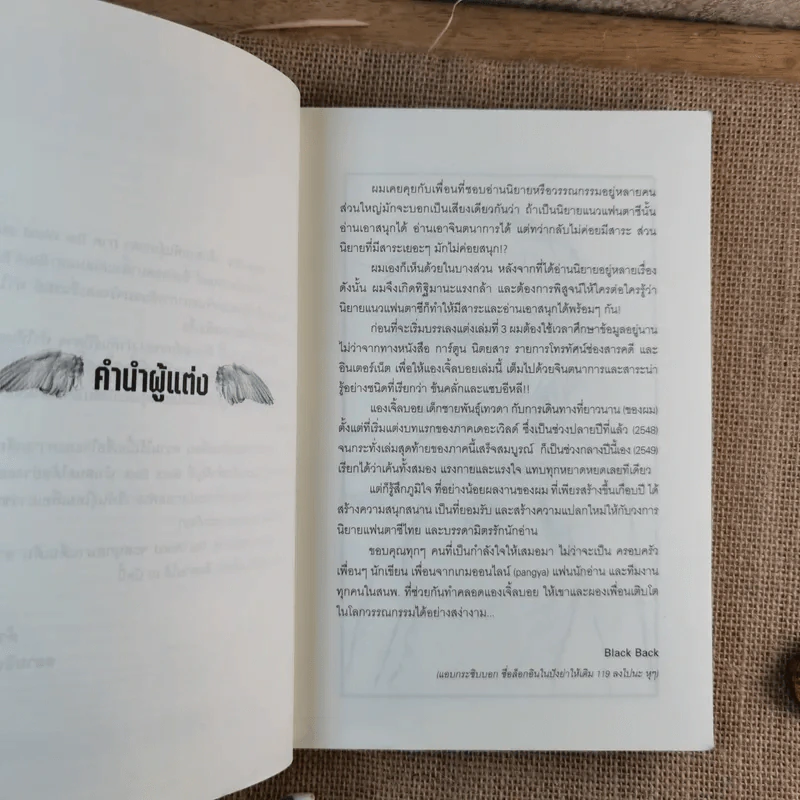 คำนำผู้แต่ง
ผมเคยคุยกับเพื่อนที่ชอบอ่านนิยายหรือวรรณกรรมอยู่หลายคน
ส่วนใหญ่มักจะบอกเป็นเสียงเดียวกันว่า ถ้าเป็นนิยายแนวแฟนตาซีนั้น
อ่านเอาสนุกได้ อ่านเอาจินตนาการได้ แต่ทว่ากลับไม่ค่อยมีสาระ ส่วน
นิยายที่มีสาระเยอะๆ มักไม่ค่อยสนุก!?
ผมเองก็เห็นด้วยในบางส่วน หลังจากที่ได้อ่านนิยายอยู่หลายเรื่อง
ดังนั้น ผมจึงเกิดทิฐิมานะแรงกล้า และต้องการพิสูจน์ให้ใครต่อใครรู้ว่า
นิยายแนวแฟนตาซีก็ทำให้มีสาระและอ่านเอาสนุกได้พร้อมๆ กัน!
ก่อนที่จะเริ่มบรรเลงแต่งเล่มที่ 3 ผมต้องใช้เวลาศึกษาข้อมูลอยู่นาน
ไม่ว่าจากทางหนังสือ การ์ตูน นิตยสาร รายการโทรทัศน์ช่องสารคดี และ
อินเตอร์เน็ต เพื่อให้แองเจิ้ลบอยเล่มนี้ เต็มไปด้วยจินตนาการและสาระน่า
รู้อย่างชนิดที่เรียกว่า ข้นคลั่กและแซบอีหลี!!
แองเจิ้ลบอย เด็กชายพันธุ์เทวดา กับการเดินทางที่ยาวนาน (ของผม)
ตั้งแต่ที่เริ่มแต่งบทแรกของภาคเดอะเวิลด์ ซึ่งเป็นช่วงปลายปีที่แล้ว (2548)
จนกระทั่งเล่มสุดท้ายของภาคนี้เสร็จสมบูรณ์ ก็เป็นช่วงกลางปีนี้เอง (2549)
เรียกได้ว่าเค้นทั้งสมอง แรงกายและแรงใจ แทบทุกหยาดหยดเลยทีเดียว
แต่ก็รู้สึกภูมิใจ ที่อย่างน้อยผลงานของผม ที่เพียรสร้างขึ้นเกือบปี ได้
สร้างความสนุกสนาน เป็นที่ยอมรับ และสร้างความแปลกใหม่ให้กับวงการ
นิยายแฟนตาซีไทย และบรรดามิตรรักนักอ่าน
ขอบคุณทุกๆ คนที่เป็นกำลังใจให้เสมอมา ไม่ว่าจะเป็น ครอบครัว
เพื่อนๆ นักเขียน เพื่อนจากเกมออนไลน์ (pangya) แฟนนักอ่าน และทีมงาน
ทุกคนในสนพ. ที่ช่วยกันทำคลอดแองเจิ้ลบอย ให้เขาและผองเพื่อนเติบโต
ในโลกวรรณกรรมได้อย่างสง่างาม...
Black Back
(แอบกระซิบบอก ชื่อล็อกอินในปังย่าให้เติม 119 ลงไปนะ หุๆ)